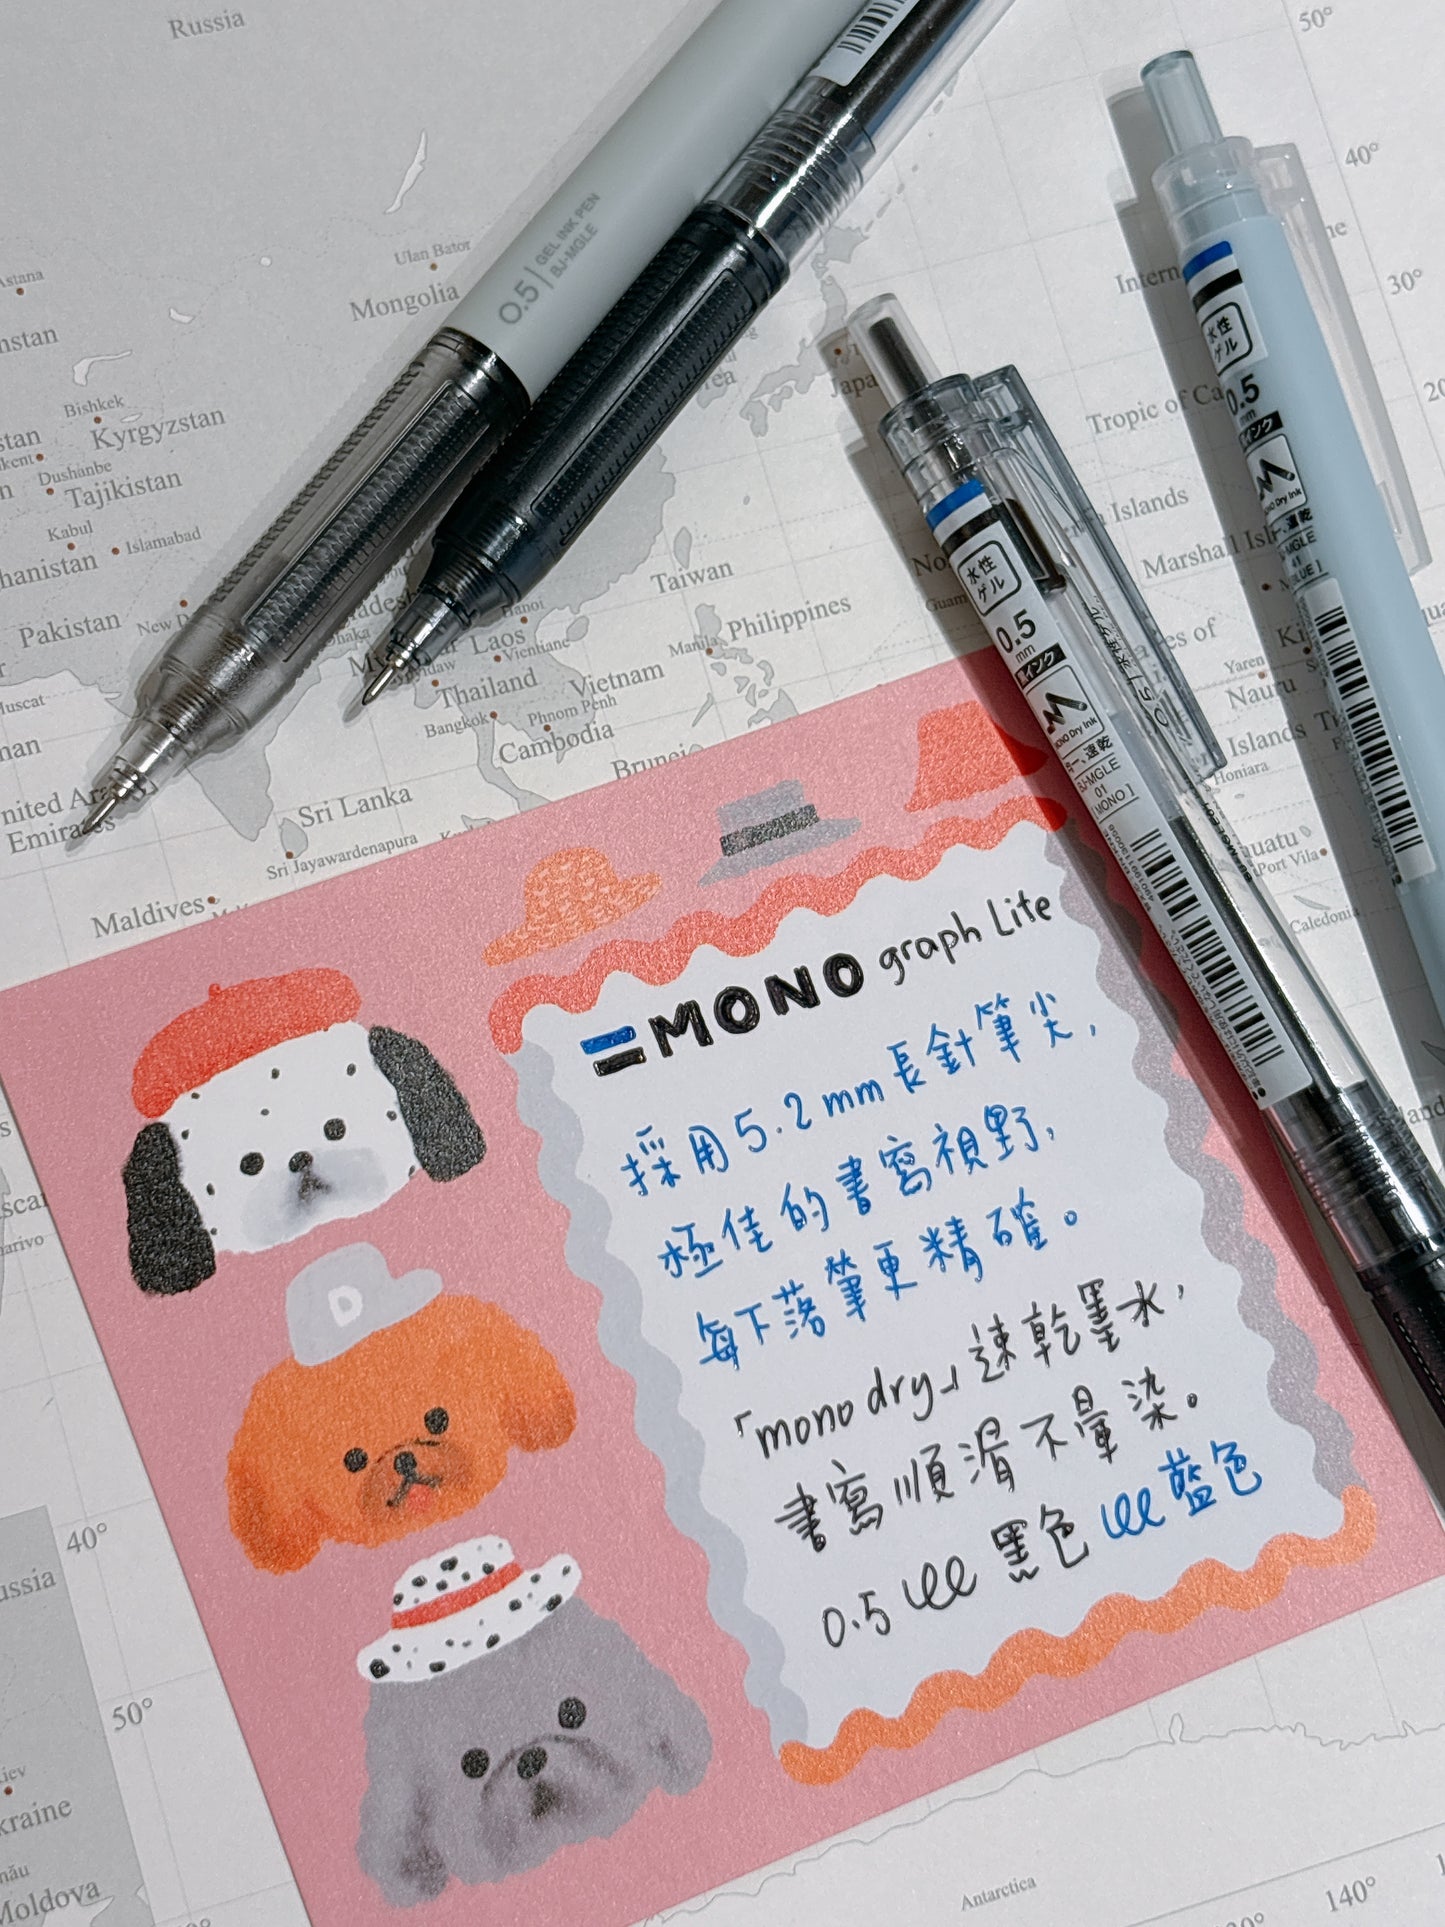 Russia
50°
40°
30°
Ulan Bator
Mongolia
Astana
Bishkek
Kyrgyzstan
Dushanbe
Tajikistan
Kabul
Islamabad
Pakistan
Taiwan
Hanoi
Laos
Vientiane
Philippines
Manila
Thailand
Vietnam
Bangkok
Phnom Penh
Cambodia
Guam
Marshall
Islands
Yaren
Nauru
Islands
Honiara
Port Vila
Sri Lanka
Sri Jayawardenapura
Maldives
0.5 | GEL INK PEN
BJ-MGLE
水性
ゲル
0.5
mm
黒インク
MONO Dry Ink
速乾
BJ-MGLE
01
[MONO]
水性
ゲル
0.5
mm
速乾
41
MONO graph Lite
採用5.2mm長針筆尖,
極佳的書寫視野,
每下落筆更精確。
「mono dry」速乾墨水,
書寫順滑不暈染。
0.5 黑色 藍色
D
40°
50°
Moldova
Antarctica
140°